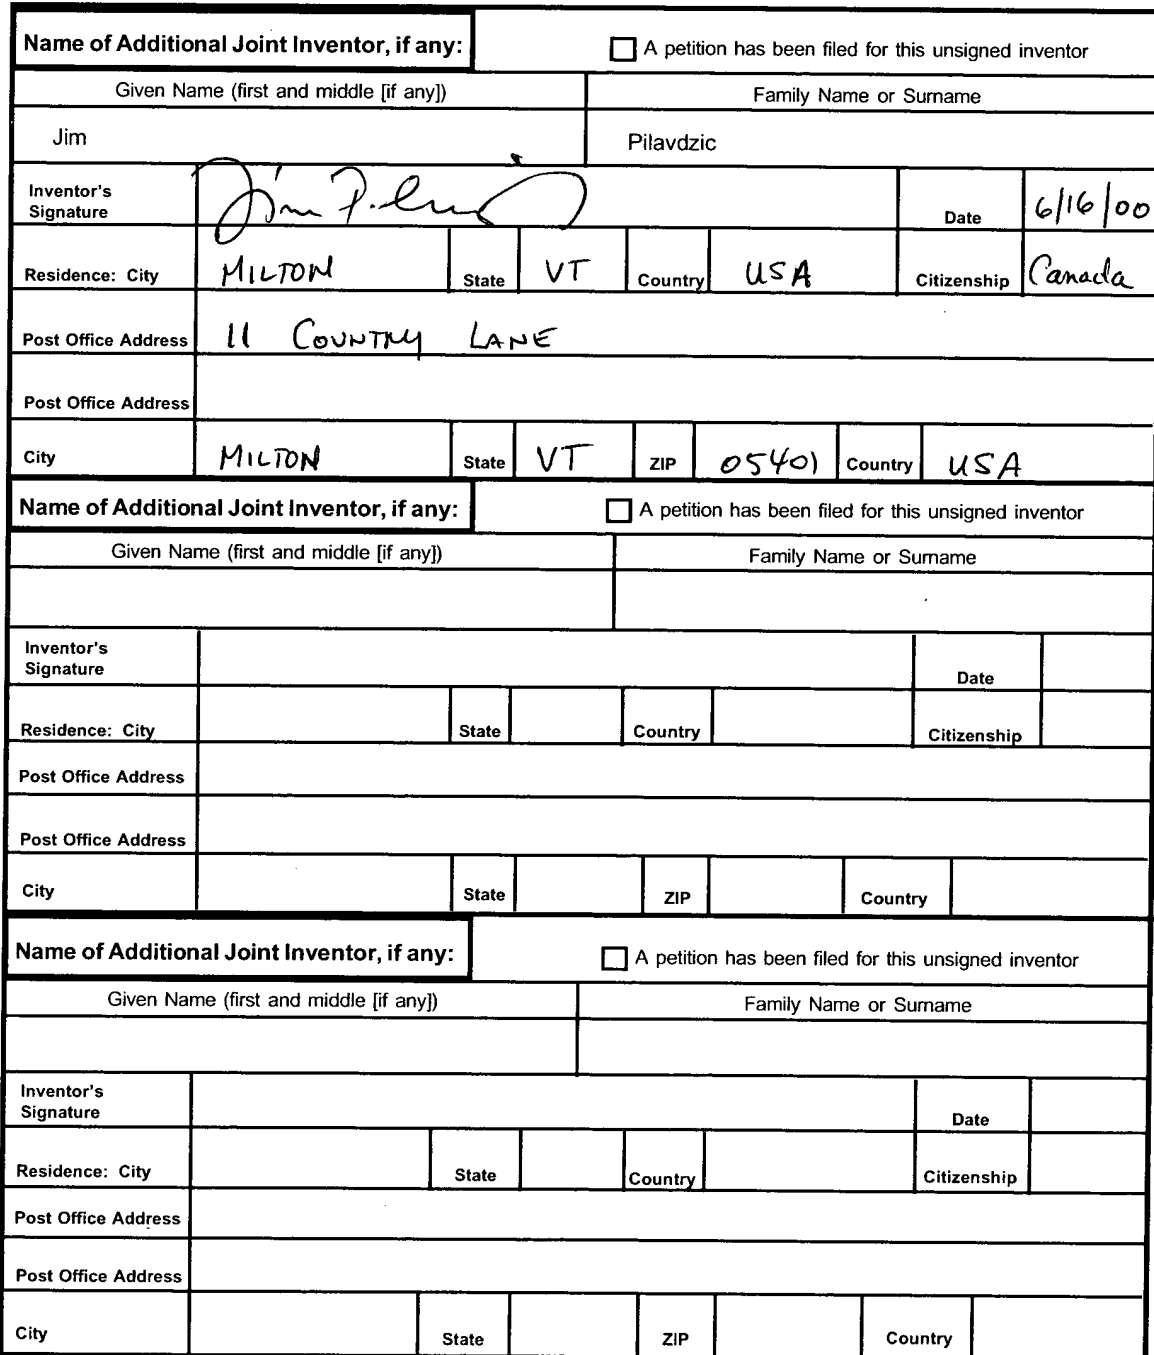 Name of Additional Joint Inventor, if any: A petition has been filed for this unsigned inventor
Given Name (first and middle [if any]) Family Name or Surname
Jim Pilavdzic
Inventor's
Signature Date 6/16/00
Residence: City MILTON State VT Country USA Citizenship Canada
Post Office Address 11 COUNTRY LANE
Post Office Address
City MILTON State VT ZIP 05401 Country USA
Name of Additional Joint Inventor, if any: A petition has been filed for this unsigned inventor
Given Name (first and middle [if any]) Family Name or Surname
Inventor's
Signature Date
Residence: City State Country Citizenship
Post Office Address
Post Office Address
City State ZIP Country
Name of Additional Joint Inventor, if any: A petition has been filed for this unsigned inventor
Given Name (first and middle [if any]) Family Name or Surname
Inventor's
Signature Date
Residence: City State Country Citizenship
Post Office Address
Post Office Address
City State ZIP Country